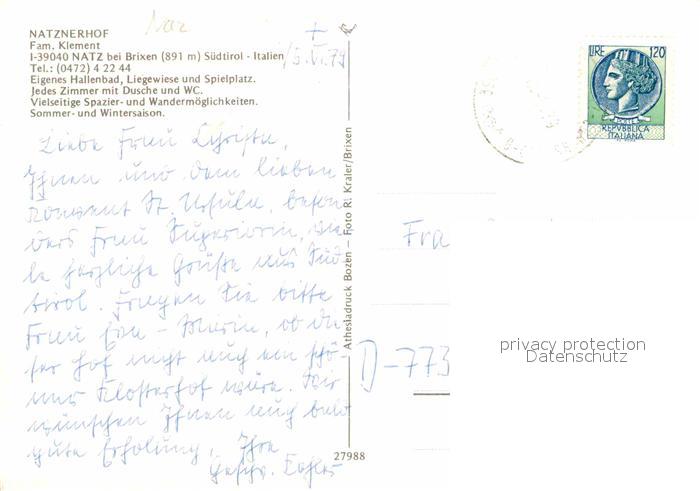 Naz
NATZNERHOF
Fam. Klement
I-39040 NATZ bei Brixen (891 m) Südtirol - Italien
Tel.: (0472) 4 22 44
Eigenes Hallenbad, Liegewiese und Spielplatz.
Jedes Zimmer mit Dusche und WC.
Vielseitige Spazier- und Wandermöglichkeiten.
Sommer- und Wintersaison.
Liebe Frau
Ihnen und dem lieben
Konvent St. Ursula, beson
ders Frau Superiorin, vie
le herzliche Grüße aus Süd
tirol. Fragen Sie bitte
Frau Eva-Maria, ob die
ser Hof nicht auch ein schö-
ner Klosterhof wäre. Wir
wünschen Ihnen auch bald
gute Erholung. Ihre
Geschw.
Athesiadruck Bozen – Foto R. Kraler/Brixen
27988
LIRE 120
POSTE
REPVBBLICA
ITALIANA
Fra
D-773
privacy protection
Datenschutz